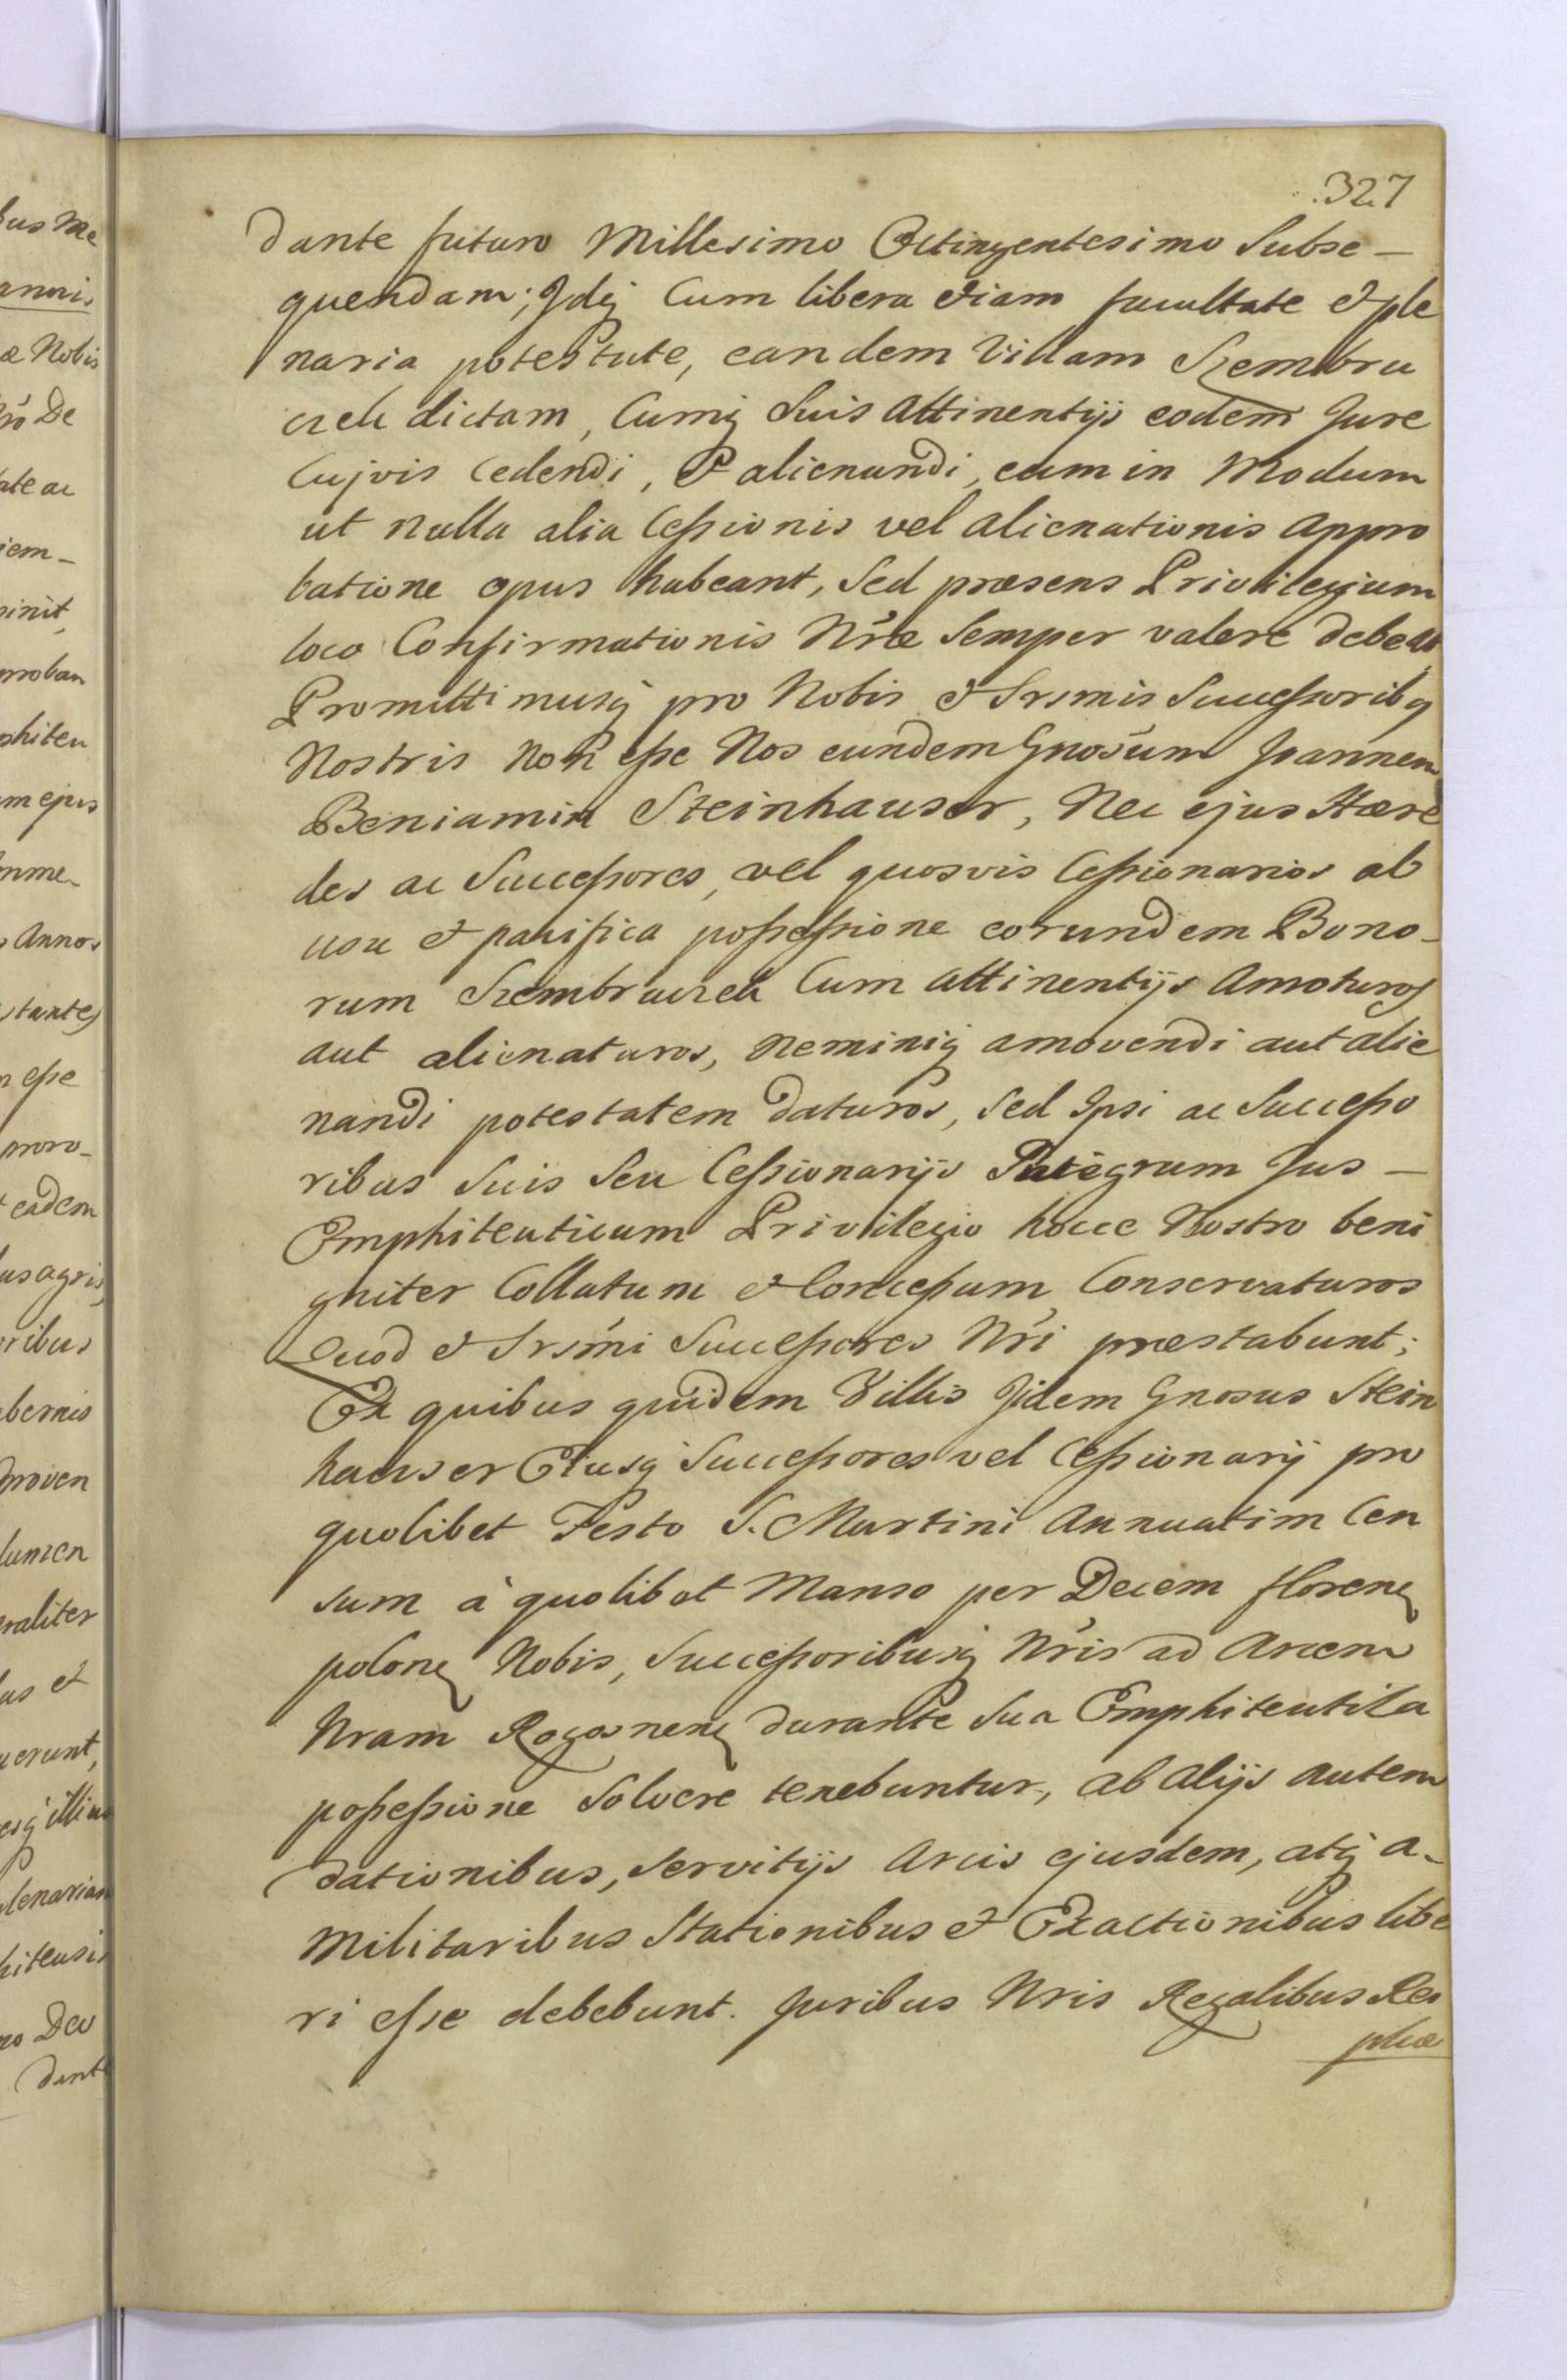 327
dante futuro Millesimo Octingentesimo Subse-
quendam; Idq Cum libera etiam facultate et ple
naria potestate, eandem Villam Szembru
czek dictam, Cumq Suis Attinentijs eodem Jure
Cujvis Cedendi, et alienandi, eum in Modum
ut nulla alia Cessionis vel alienationis appro
batione opus habeant, Sed præsens Privilegium
loco Confirmationis Nræ Semper valere debeat
Promittimusq pro Nobis et Srsmis Successoribq
Nostris Non esse Nos eundem Gnosum Joannem
Beniamin Steinhauser, Nec ejus Hære
des ac Successores, vel quosvis Cessionarios ab
usu et pacifica possessione eorundem Bono-
rum Szembruczek Cum attinentijs Amoturos
aut alienaturos, neminiq amovendi aut alie
nandi potestatem daturos, Sed Ipsi ac Successo
ribus Suis Seu Cessionarijs Integrum Jus-
Emphiteuticum Privilegio hocce Nostro beni
gniter Collatum et Concessum Conservaturos
Quod et Srsmi Successores Nri præstabunt;
Ex quibus quidem Villis Jidem Gnosus Stein
hauser Eiusq Successores vel Cessionarij pro
quolibet Festo S. Martini Annuatim Cen
sum à quolibet Manso per Decem floren
polon Nobis, Successoribusq Nris ad Arcem
Nram Rogosnen durante Sua Emphiteutica
possessione Solvere tenebuntur, ab alijs autem
dationibus, Servitijs Arcis ejusdem, atq a-
Militaribus Stationibus et Exactionibus libe
ri esse debebunt. Juribus Nris Regalibus Rei
plicæ